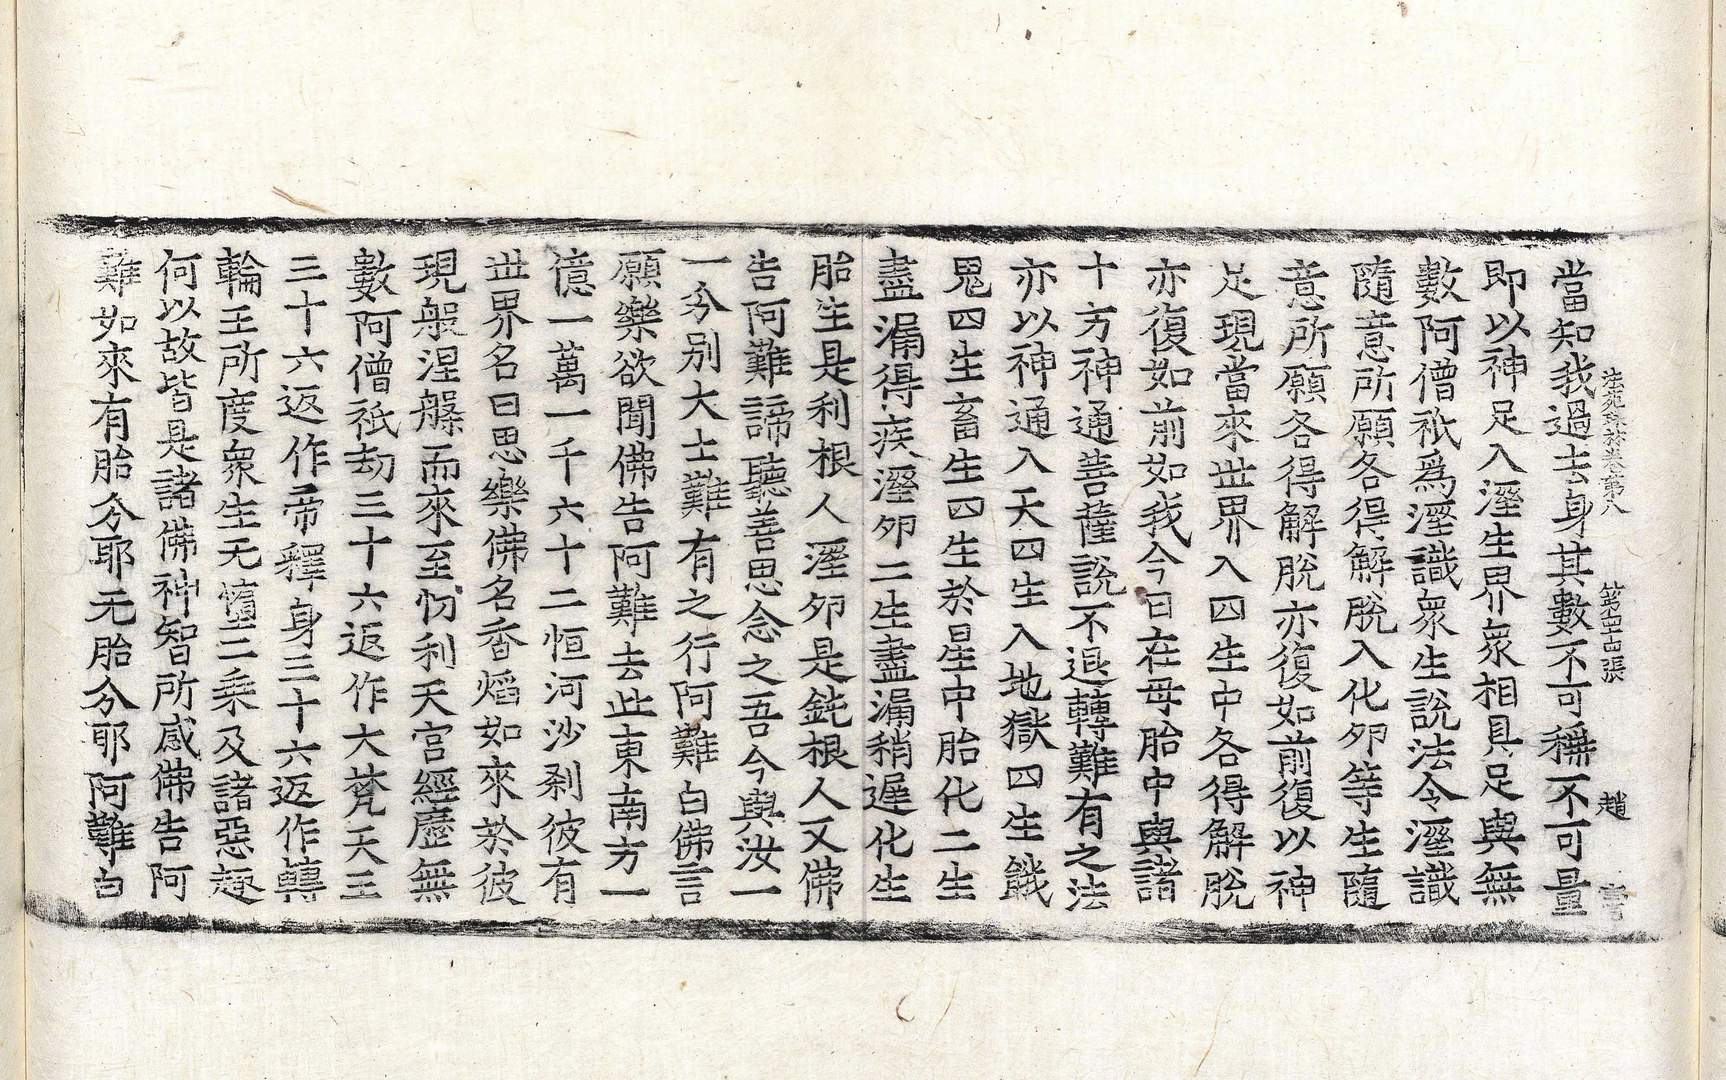 法苑珠林卷第八　第四十四張　趙　當
當知我過去身其數不可稱不可量
即以神足入溼生界衆相具足與無
數阿僧祇爲溼識衆生說法令溼識
隨意所願各得解脫入化夘等生隨
意所願各得解脫亦復如前復以神
足現當來世界入四生中各得解脫
亦復如前如我今日在母胎中與諸
十方神通菩薩說不退轉難有之法
亦以神通入天四生入地獄四生餓
鬼四生畜生四生於星中胎化二生
盡漏得疾溼夘二生盡漏稍遲化生
胎生是利根人溼夘是鈍根人又佛
告阿難諦聽善思念之吾今與汝一
一分別大士難有之行阿難白佛言
願樂欲聞佛告阿難去此東南方一
億一萬一千六十二恒河沙刹彼有
世界名曰思樂佛名香熖如來於彼
現般涅槃而來至忉利天宮經歷無
數阿僧祇劫三十六返作大梵天王
三十六返作帝釋身三十六返作轉
輪王所度衆生无㯆二乘及諸惡趣
何以故皆是諸佛神智所感佛告阿
難如來有胎分耶无胎分耶阿難白